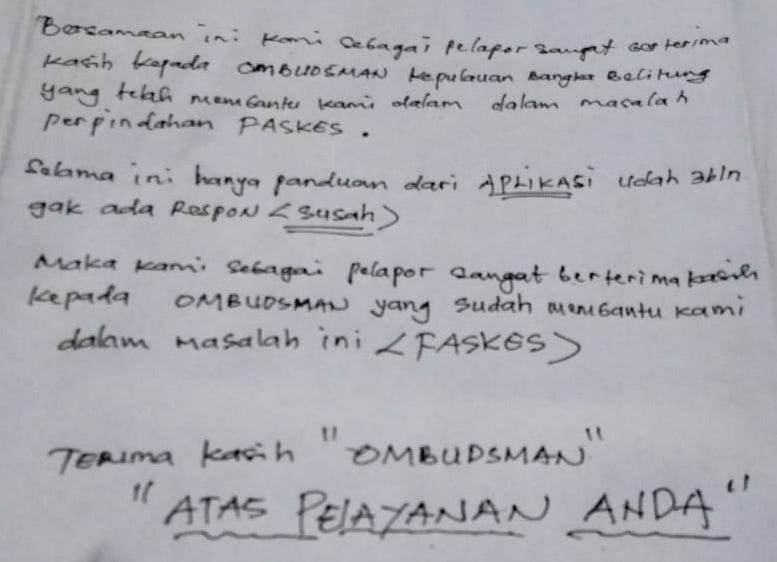 Bersamaan ini kami sebagai pelapor sangat berterima
kasih kepada OMBUDSMAN kepulauan Bangka Belitung
yang telah membantu kami dalam dalam masalah
perpindahan PASKES.
Selama ini hanya panduan dari APLIKASI udah 3bln
gak ada Respon <susah>
Maka kami sebagai pelapor sangat berterima kasih
kepada OMBUDSMAN yang sudah membantu kami
dalam masalah ini <FASKES>
TERIMA kasih "OMBUDSMAN"
"ATAS PELAYANAN ANDA"